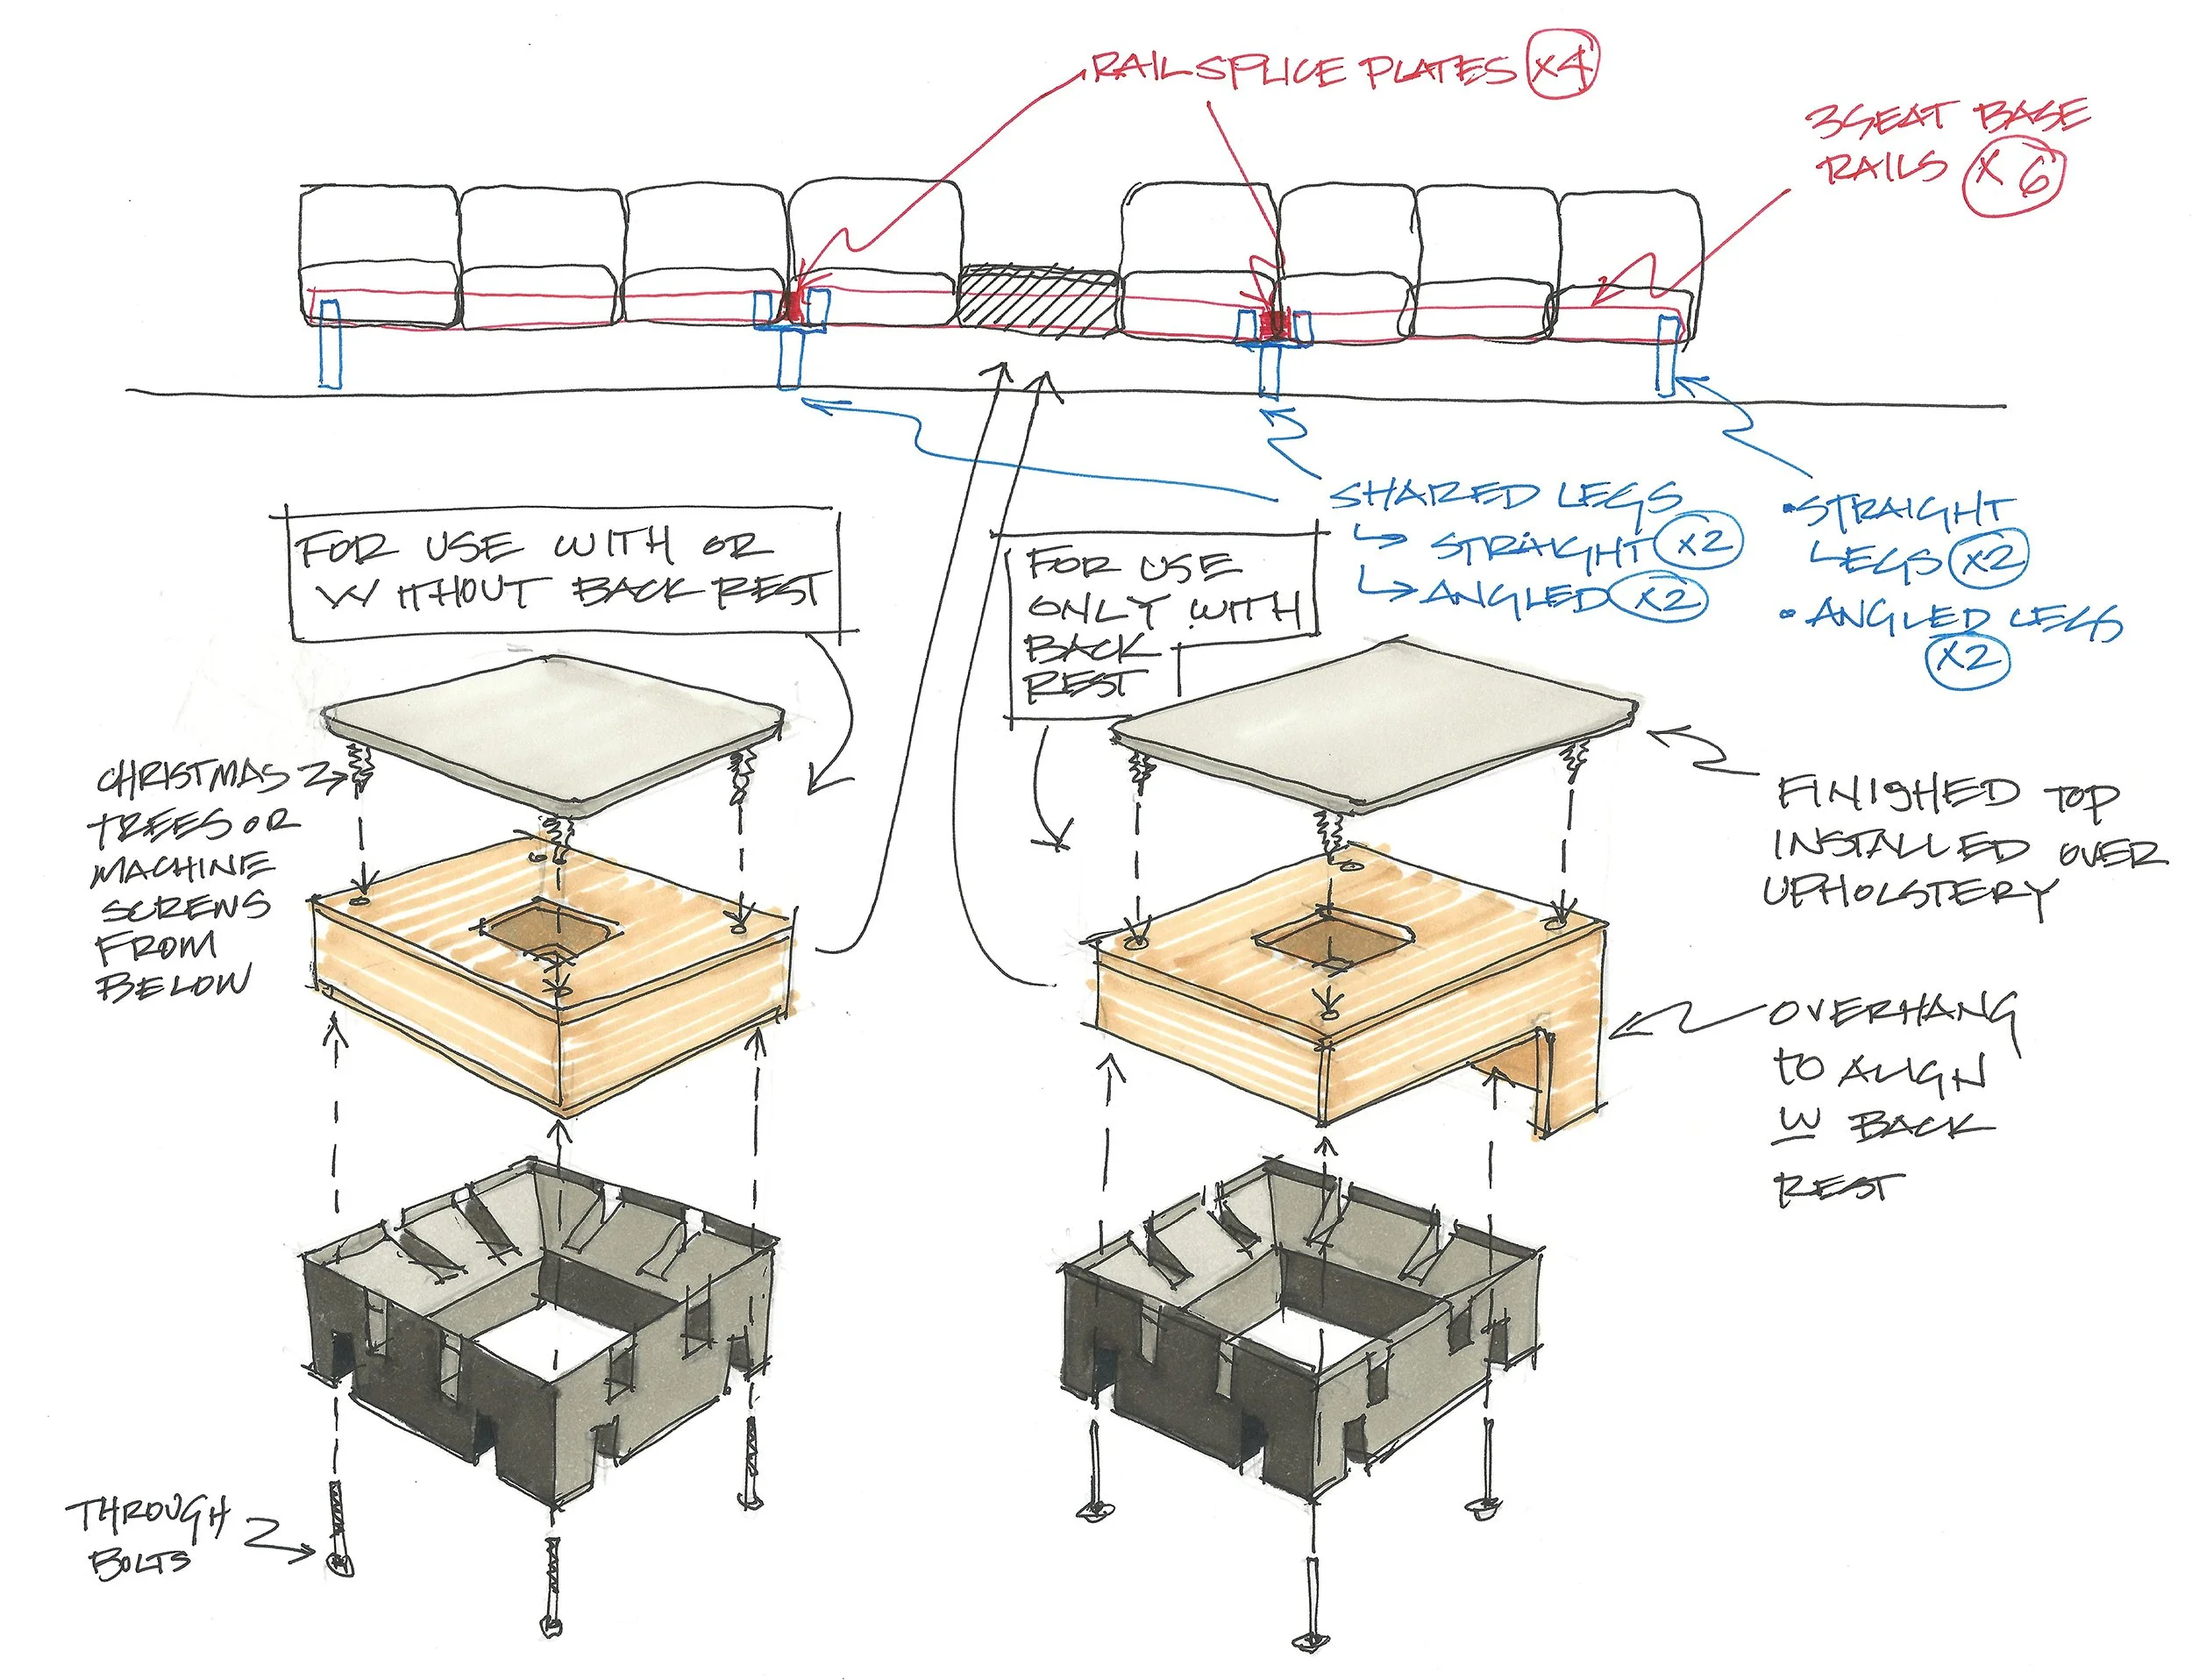 RAIL SPLICE PLATES X4
3 SEAT BASE
RAILS X 6
SHARED LEGS
↳ STRAIGHT X2
↳ ANGLED X2
• STRAIGHT
LEGS X2
• ANGLED LEGS
X2
FOR USE WITH OR
WITHOUT BACK REST
FOR USE
ONLY WITH
BACK
REST
CHRISTMAS
TREES OR
MACHINE
SCREWS
FROM
BELOW
FINISHED TOP
INSTALLED OVER
UPHOLSTERY
OVERHANG
TO ALIGN
W BACK
REST
THROUGH
BOLTS